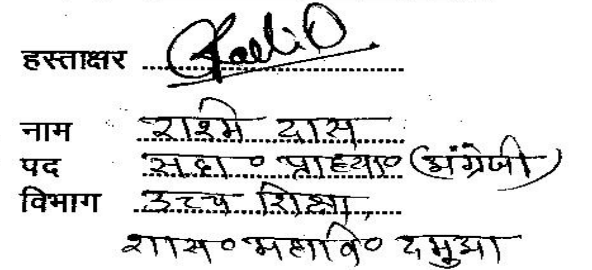 हस्ताक्षर
नाम राश्मि दास
पद सहा० प्राध्या० (अंग्रेजी)
विभाग उच्च शिक्षा,
शास० महावि० दमुआ